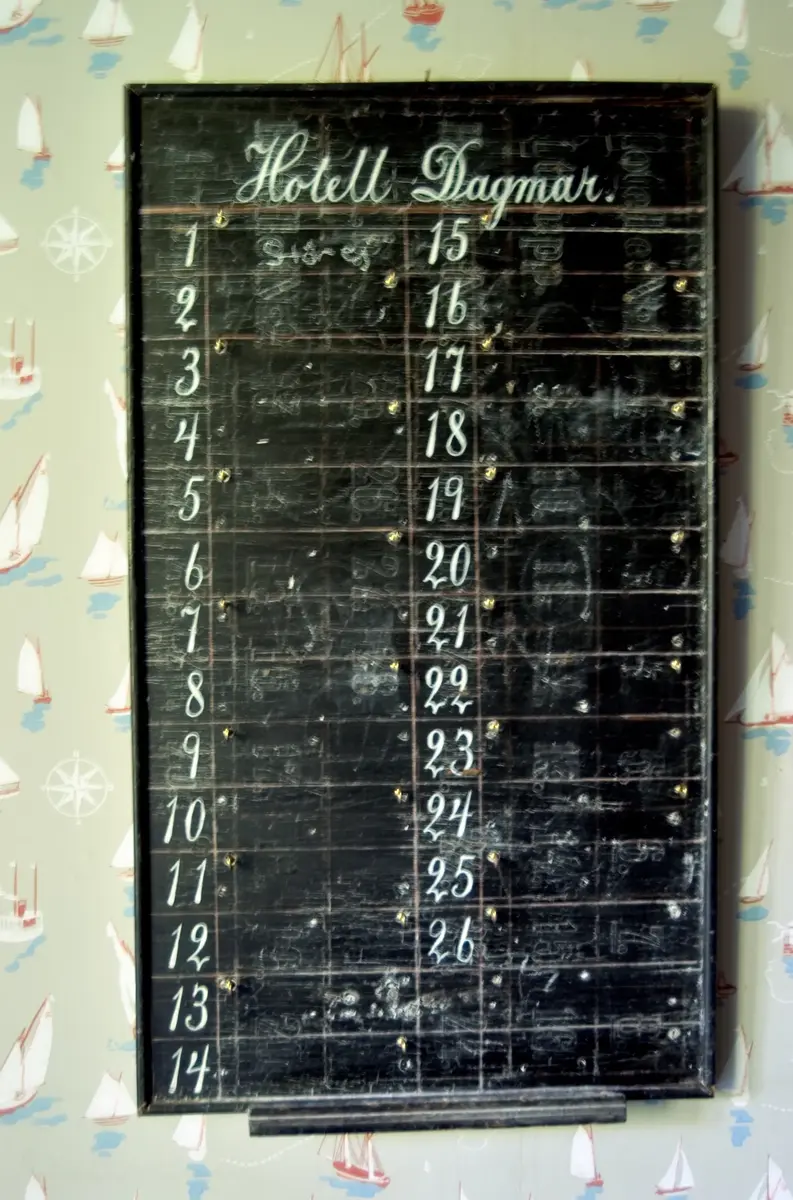 Hotell Dagmar.
1 15
2 16
3 17
4 18
5 19
6 20
7 21
8 22
9 23
10 24
11 25
12 26
13
14